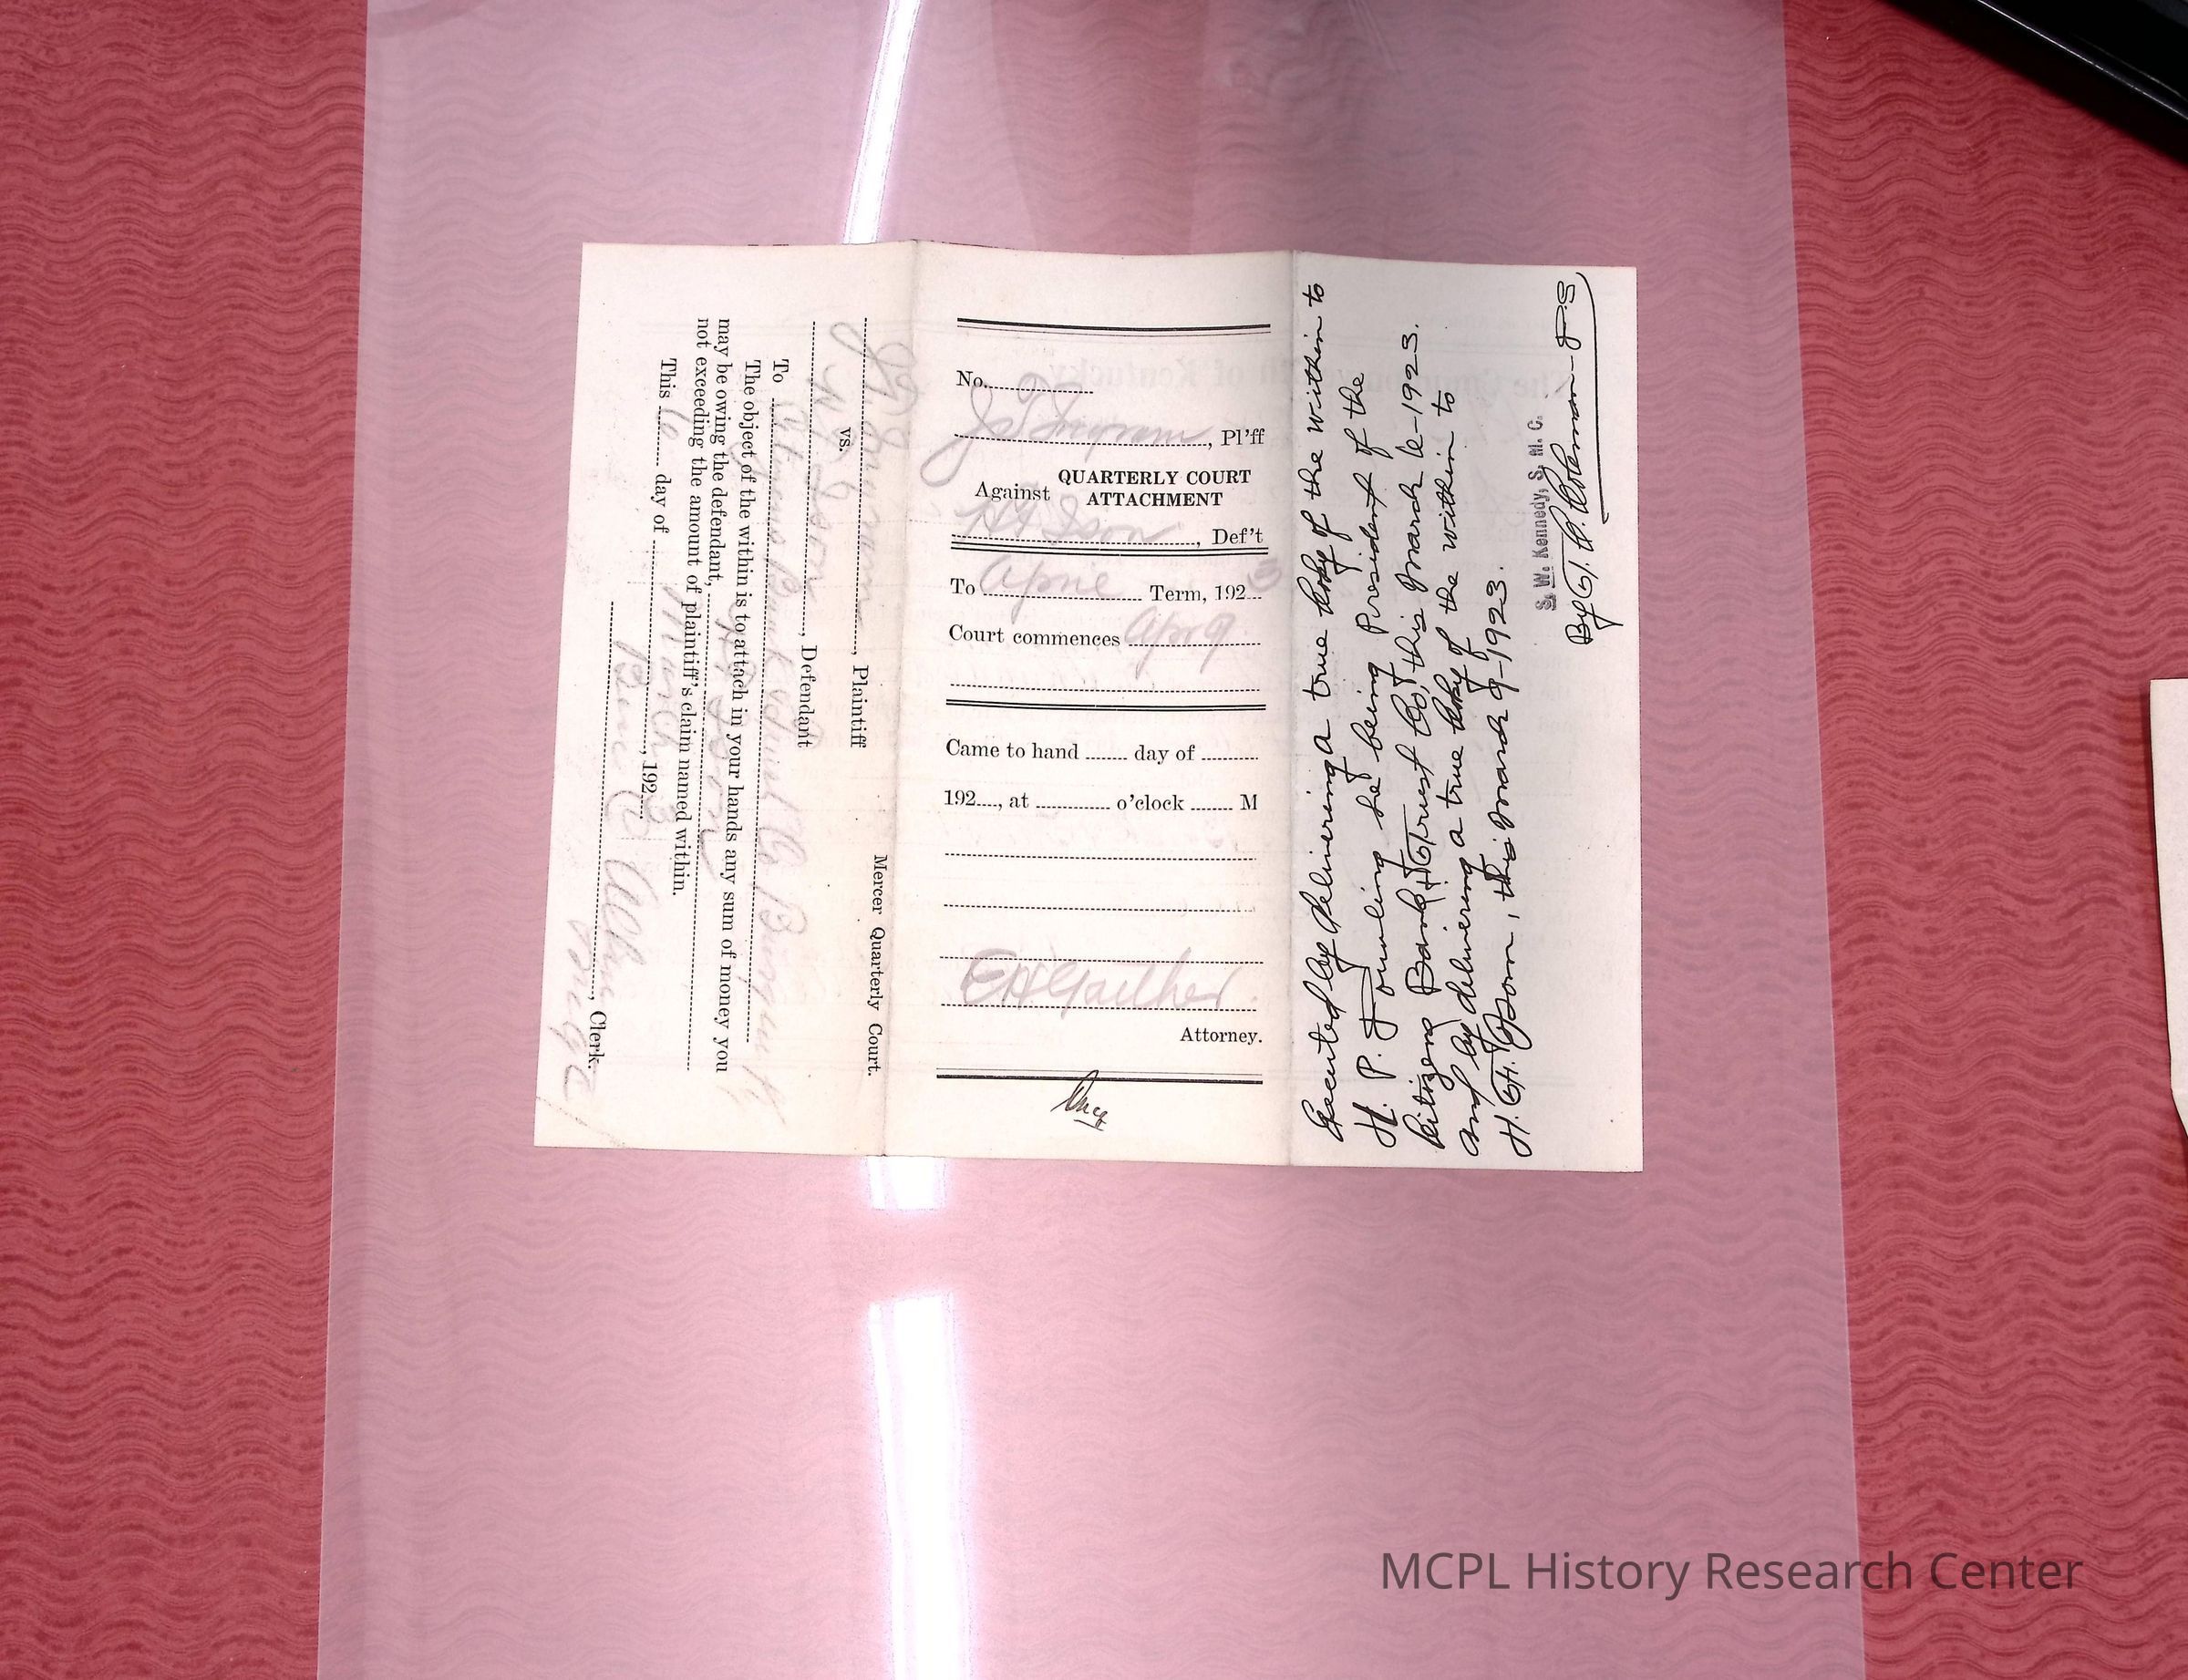 Mercer Quarterly Court.
J S Ingram, Plaintiff
vs.
, Defendant
To Citizens Bank & Trust Co
The object of the within is to attach in your hands any sum of money you
may be owing the defendant,
not exceeding the amount of plaintiff's claim named within.
This 6 day of March, 192 3
Clerk.
No.
J S Ingram, Pl'ff
Against QUARTERLY COURT ATTACHMENT
, Def't
To April Term, 192 3
Court commences Apr 9
Came to hand day of
192, at o'clock M
E H Gaither
Attorney.
Executed by delivering a true copy of the within to
H. P. he being President of the
Citizens Bank & Trust Co, this March 6-1923.
and by delivering a true copy of the within to
H. this March 9-1923.
S. W. Kennedy, S. M. C.
By Coleman - D.S
MCPL History Research Center